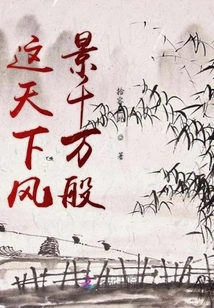 这天下风
景千万般
著